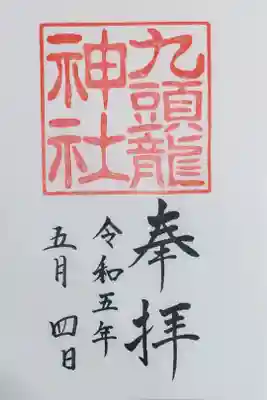 九頭龍
神社
奉拝
令和五年
五月四日